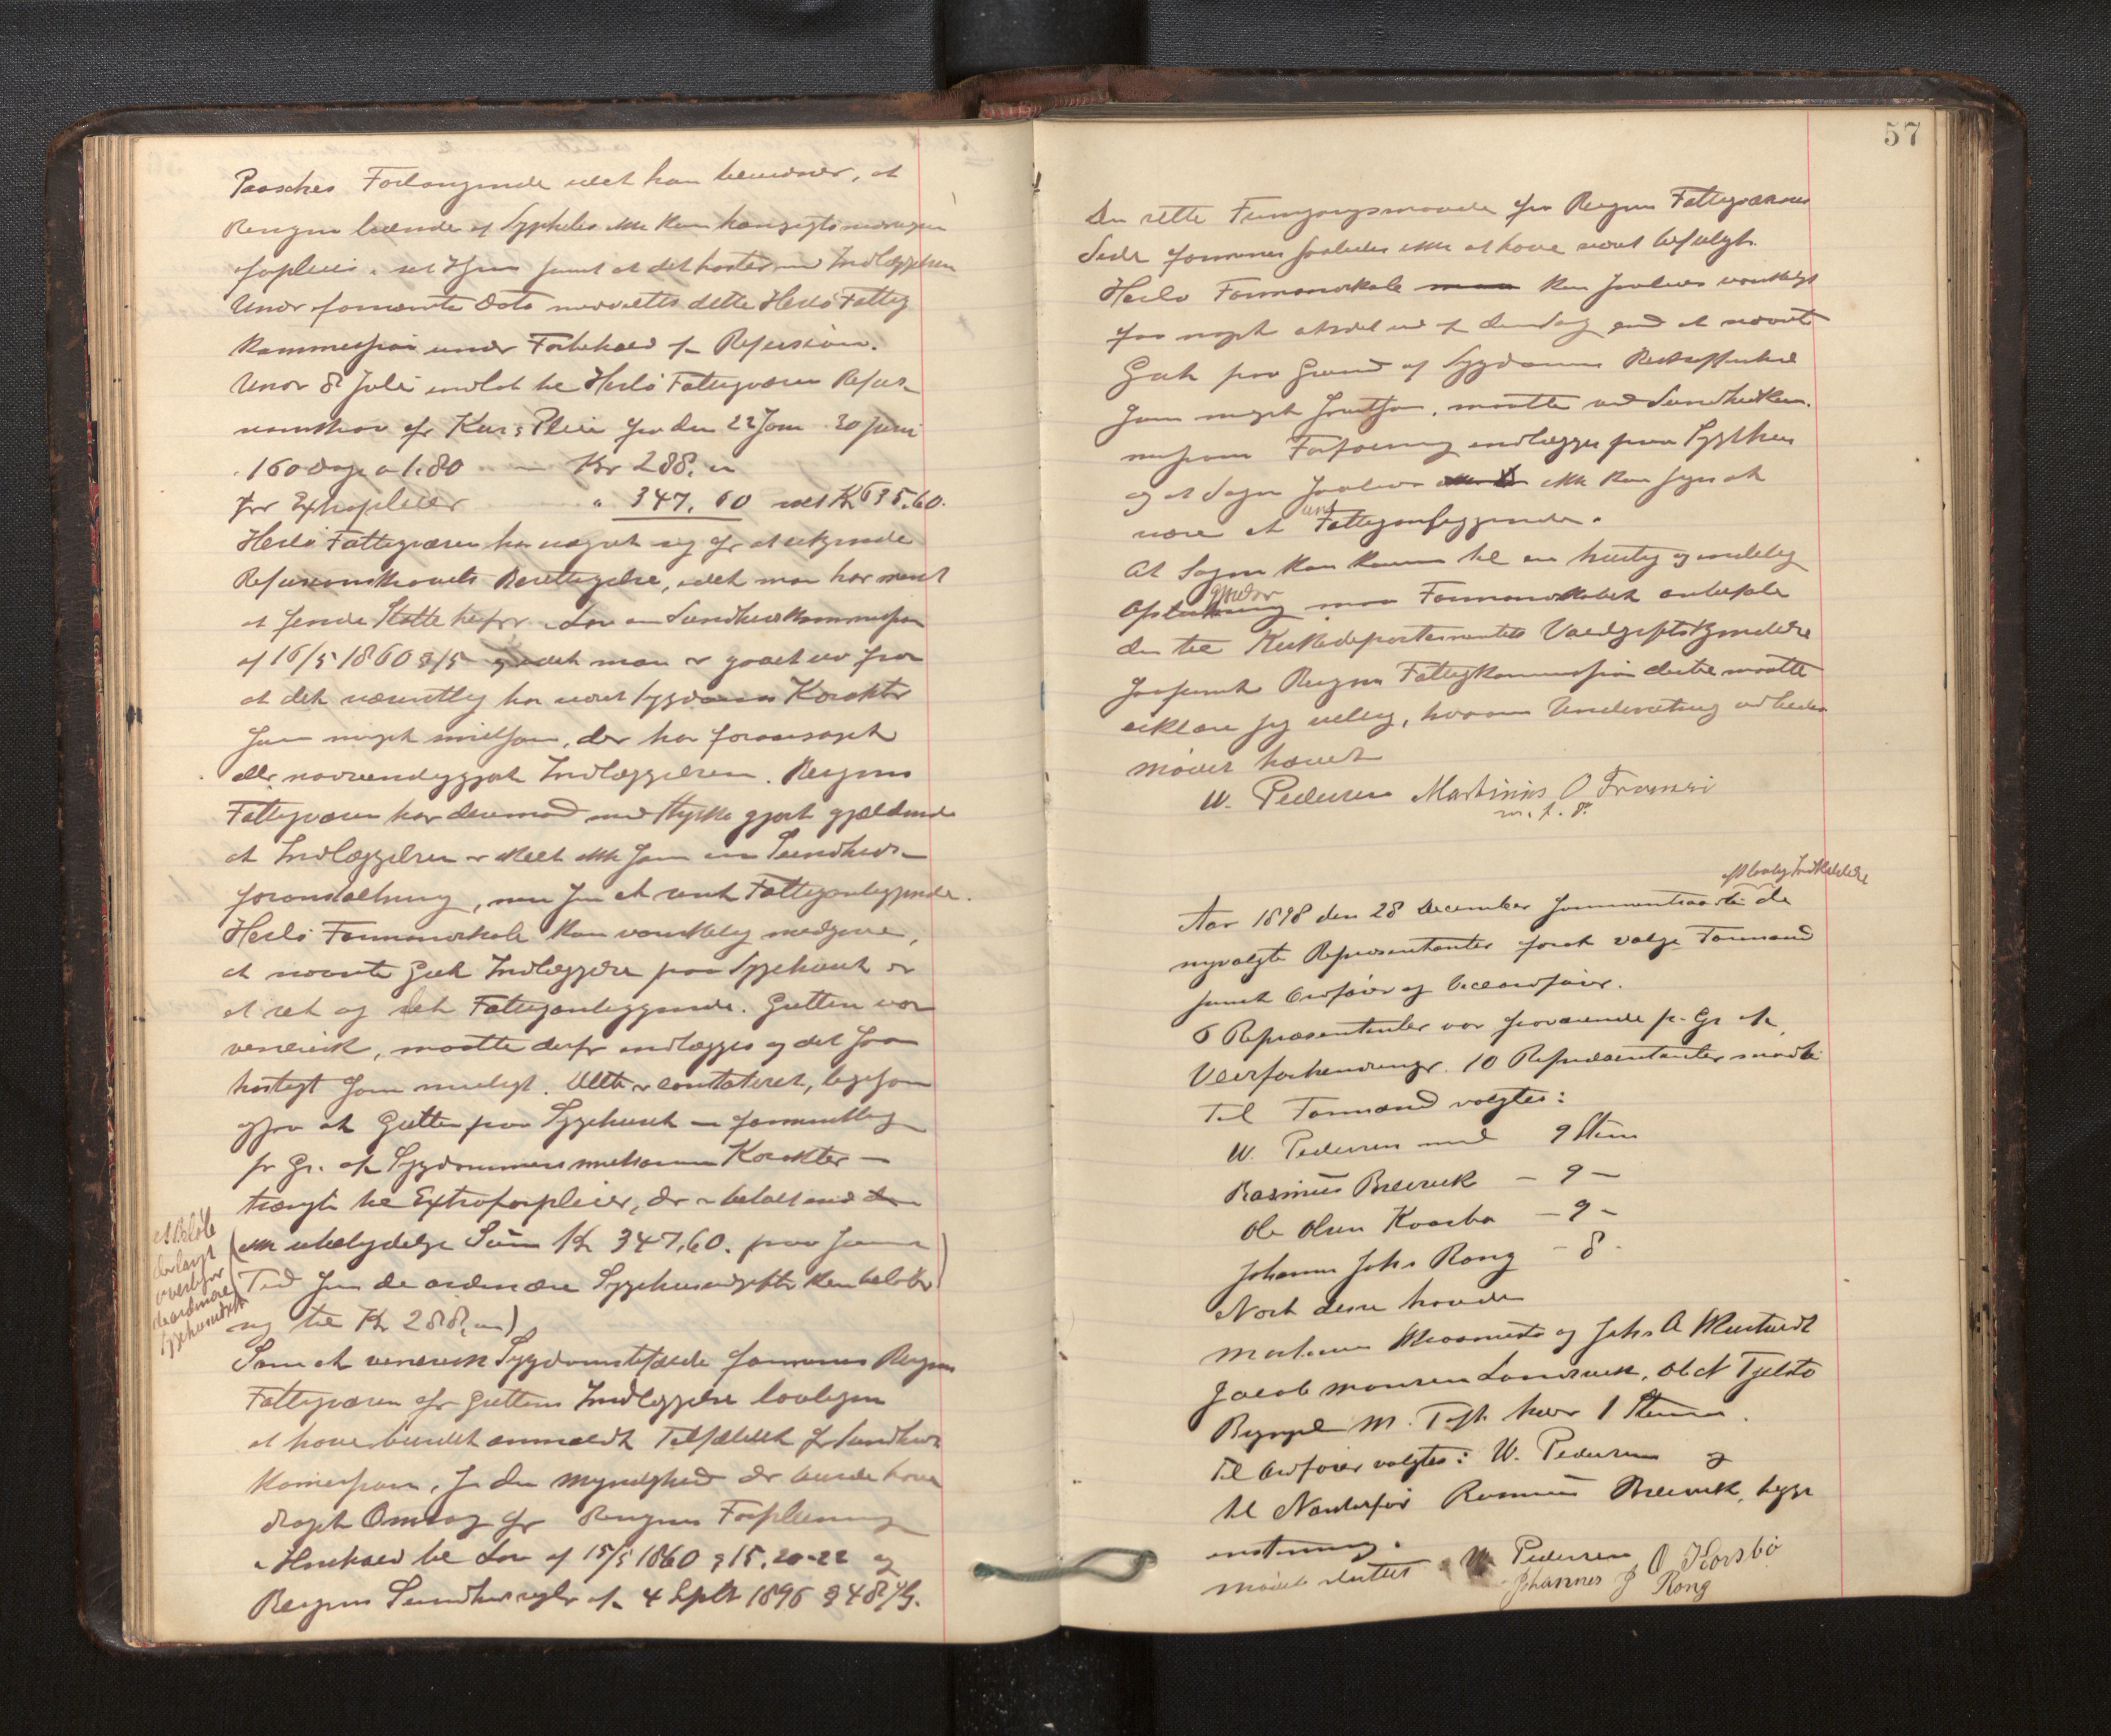 Paasches Forlangende idet han bemærker, at
Bergens Syphilis ikke kan hensigtsmæssigen
forpleies i et Hjem samt at det haster med Indlæggelsen
Under samme Dato meddeltes dette Herlø Fattig
kommission under Forbehold af Refusion.
Under 8 Juli indløb til Herlø Fattigvæsen Refus-
ionskrav for Kur & Pleie fra den 22 Jan - 30 Juni
160 Dage a 1.80 Kr 288. "
For Extrapleier " 347,60 ialt Kr 635,60.
Herlø Fattigvæsen har vægret sig for at erkjende
Refusionskravets Berettigelse, idet man har ment
at finde Støtte herfor i Lov om Sundhedskommission
af 16/5 1860 § 15 idet man er gaaet ud fra
at det væsentlig har været Sygdommens Karakter
som meget smitsom, der har foraarsaget
eller nødvendiggjort Indlæggelsen. Bergens
Fattigvæsen har derimod med Styrke gjort gjældende
at Indlæggelsen er skeet ikke som en Sundheds-
foranstaltning, men som et rent Fattiganliggende.
Herlø Formandskab kan vanskelig medgive,
at nævnte Guts Indlæggelse paa Sygehuset er
et ret og slet Fattiganliggende. Gutten var
venerisk, maatte derfor indlægges og det saa
hastigt som muligt. Dette er constateret, ligesom
ogsaa at Gutten paa Sygehuset - formentlig
pr Gr. af Sygdommens smitsomme Karakter -
trængte til Extraforpleier, der er betalt med
(en ubetydelig Sum Kr 347,60. paa samme
Tid som de ordinære Sygehusudgifter kun beløber
sig til Kr 288,")
et Beløb
der langt
overstiger
de ordinære
Sygehusudgifter
Som et venerisk Sygdomstilfælde formenes Bergens
Fattigvæsen før Guttens Indlæggelse lovligen
at have burdet anmeldt Tilfældet for Sundheds
Komission, som den Myndighed der burde have
draget Omsorg for Forpleining
i Henhold til Lov af 15/5 1860 § 15, 20-22 og
Bergens Sundhedsregler af 4 Septr 1896 § 48
57
Den rette Fremgangsmaade fra Bergens Fattigvæsens
Side formenes saaledes ikke at have været befulgt.
Herlø Formandskab kan saaledes vanskeligt
faa noget andet ud af den Sag end at nævnte
Gut paa Grund af Sygdommens Beskaffenhed
som meget smitsom, maatte ved Sundhedskom-
missions Forføining indlægges paa Sygehus
og at Sagen saaledes ikke kan siges at
være et rent Fattiganliggende.
At Sagen kan komme til en hurtig og endelig
Afgjørelse maa Formandskabet anbefale
den til Kirkedepartementets Voldgiftskjendelse
saafremt Bergens Fattigkommission dertil maatte
erklære sig villig, hvorom Underretning udbedes
Mødet hævet
W. Pedersen Martinius O Fromrei
m. f. P.
Aar 1898 den 28 December sammentraadte de
efter lovlig Indkaldelse
nyvalgte Repræsentanter forat vælge Formand
samt Ordfører og Viceordfører.
6 Repræsentanter var fraværende p. Gr. af
Veirforhindringer. 10 Repræsentanter mødte
Til Formænd valgtes:
W. Pedersen med 9 Stem
Rasmus Breivik - 9 -
Ole Olsen Kaarbø - 9 -
Johannes Johs Rong - 8 -
Næst disse havde
Jacob Monsen Landsvik, Ole N Tjeldstø
M. Toft hver 1 Stemme.
Til Ordfører valgtes: W. Pedersen og
til Næstordfør Rasmus Breivik, begge
enstemmig.
Mødet sluttet W. Pedersen O Korsbö
Johannes J Rong